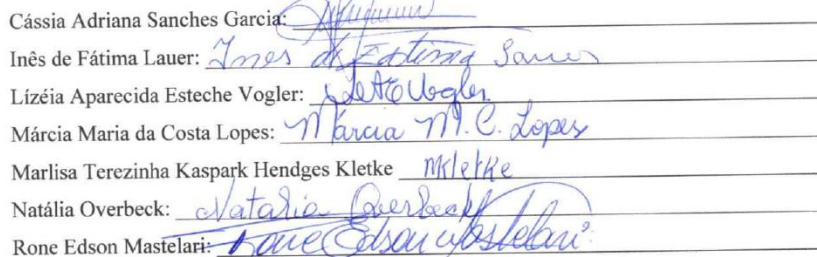 Cássia Adriana Sanches Garcia:
Inês de Fátima Lauer: Ines de Fatima Lauer
Lízéia Aparecida Esteche Vogler: Vogler
Márcia Maria da Costa Lopes: Marcia M. C. Lopes
Marlisa Terezinha Kaspark Hendges Kletke MKletke
Natália Overbeck: Natalia Overbeck
Rone Edson Mastelari: Rone Edson Mastelari